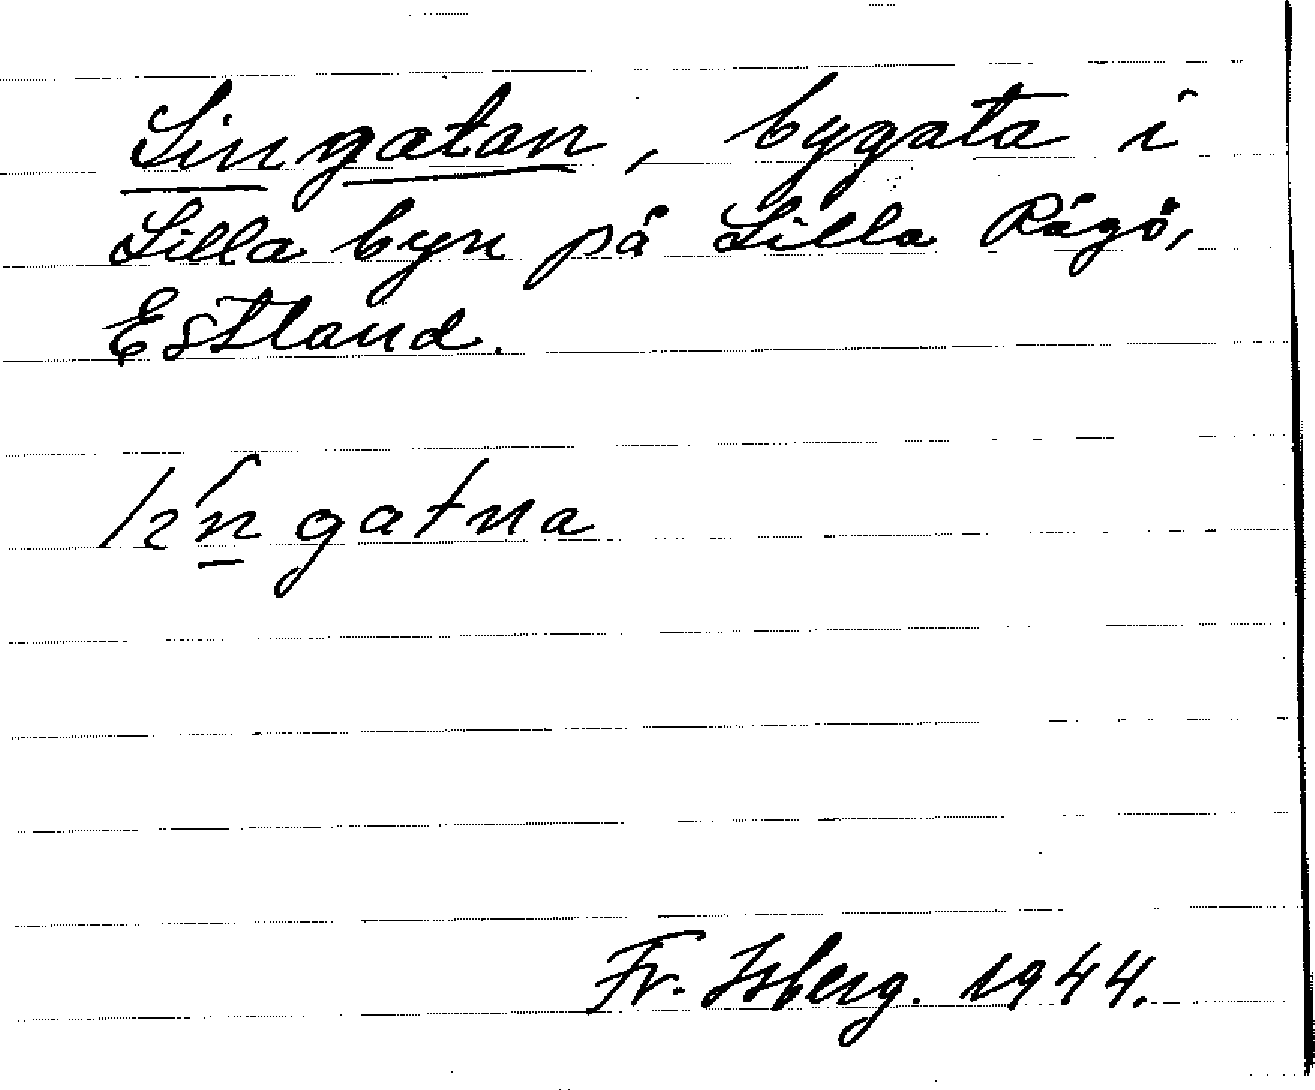 Lingatan, bygata i
Lilla byn på Lilla Rågö,
Estland.
lıńgatna
Fr. Isberg. 1944.